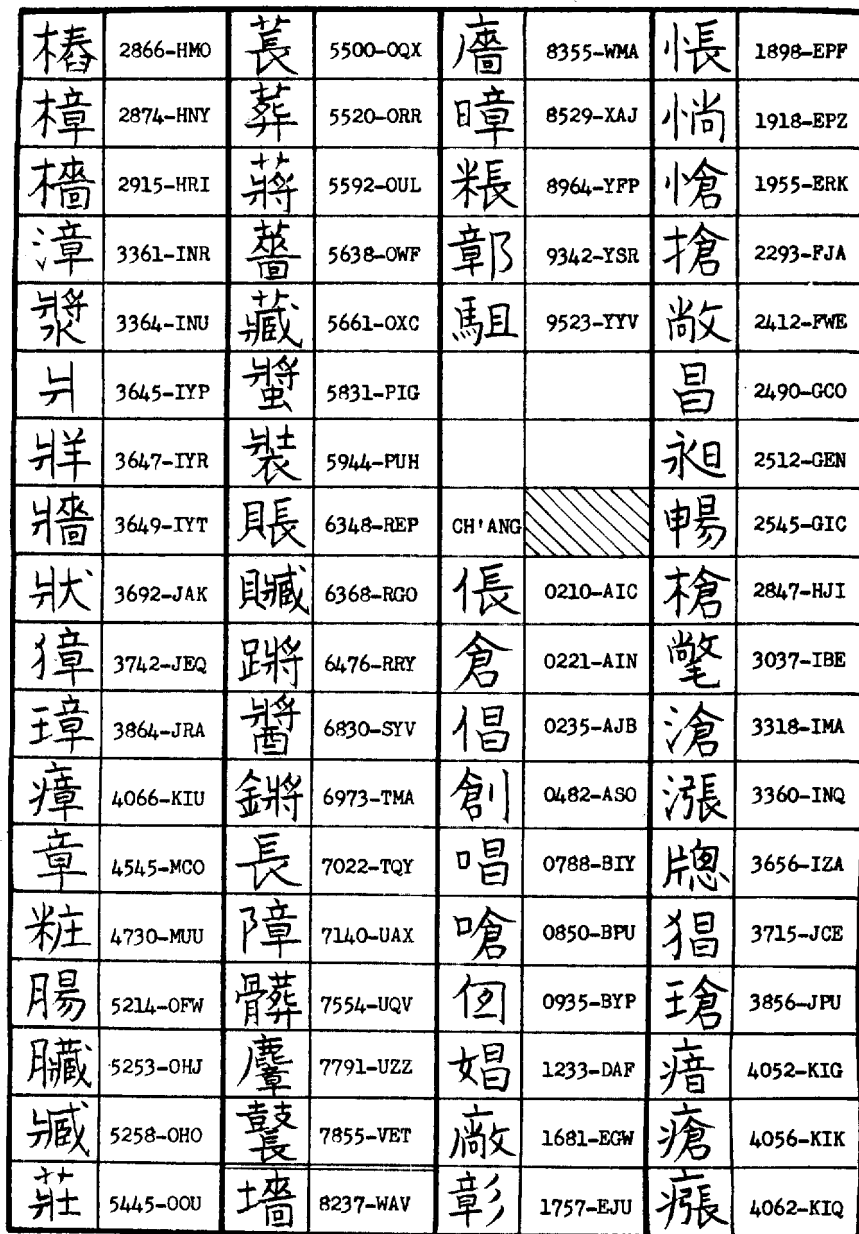 樁 2866-HMO 萇 5500-OQX 廧 8355-WMA 悵 1898-EPF
樟 2874-HNY 葬 5520-ORR 暲 8529-XAJ 惝 1918-EPZ
檣 2915-HRI 蔣 5592-OUL 粻 8964-YFP 愴 1955-ERK
漳 3361-INR 薔 5638-OWF 鄣 9342-YSR 搶 2293-FJA
漿 3364-INU 藏 5661-OXC 駔 9523-YYV 敞 2412-FWE
爿 3645-IYP 螿 5831-PIG 昌 2490-GCO
牂 3647-IYR 裝 5944-PUH 昶 2512-GEN
牆 3649-IYT 賬 6348-REP CH'ANG 暢 2545-GIC
狀 3692-JAK 贓 6368-RGO 倀 0210-AIC 槍 2847-HJI
獐 3742-JEQ 蹡 6476-RRY 倉 0221-AIN 氅 3037-IBE
璋 3864-JRA 醬 6830-SYV 倡 0235-AJB 滄 3318-IMA
瘴 4066-KIU 鏘 6973-TMA 創 0482-ASO 漲 3360-INQ
章 4545-MCO 長 7022-TQY 唱 0788-BIY 牕 3656-IZA
粧 4730-MUU 障 7140-UAX 嗆 0850-BPU 猖 3715-JCE
腸 5214-OFW 髒 7554-UQV 0935-BYP 瑲 3856-JPU
臟 5253-OHJ 麞 7791-UZZ 娼 1233-DAF 瘖 4052-KIG
臧 5258-OHO 鼚 7855-VET 廠 1681-EGW 瘡 4056-KIK
莊 5445-OOU 墻 8237-WAV 彰 1757-EJU 瘬 4062-KIQ